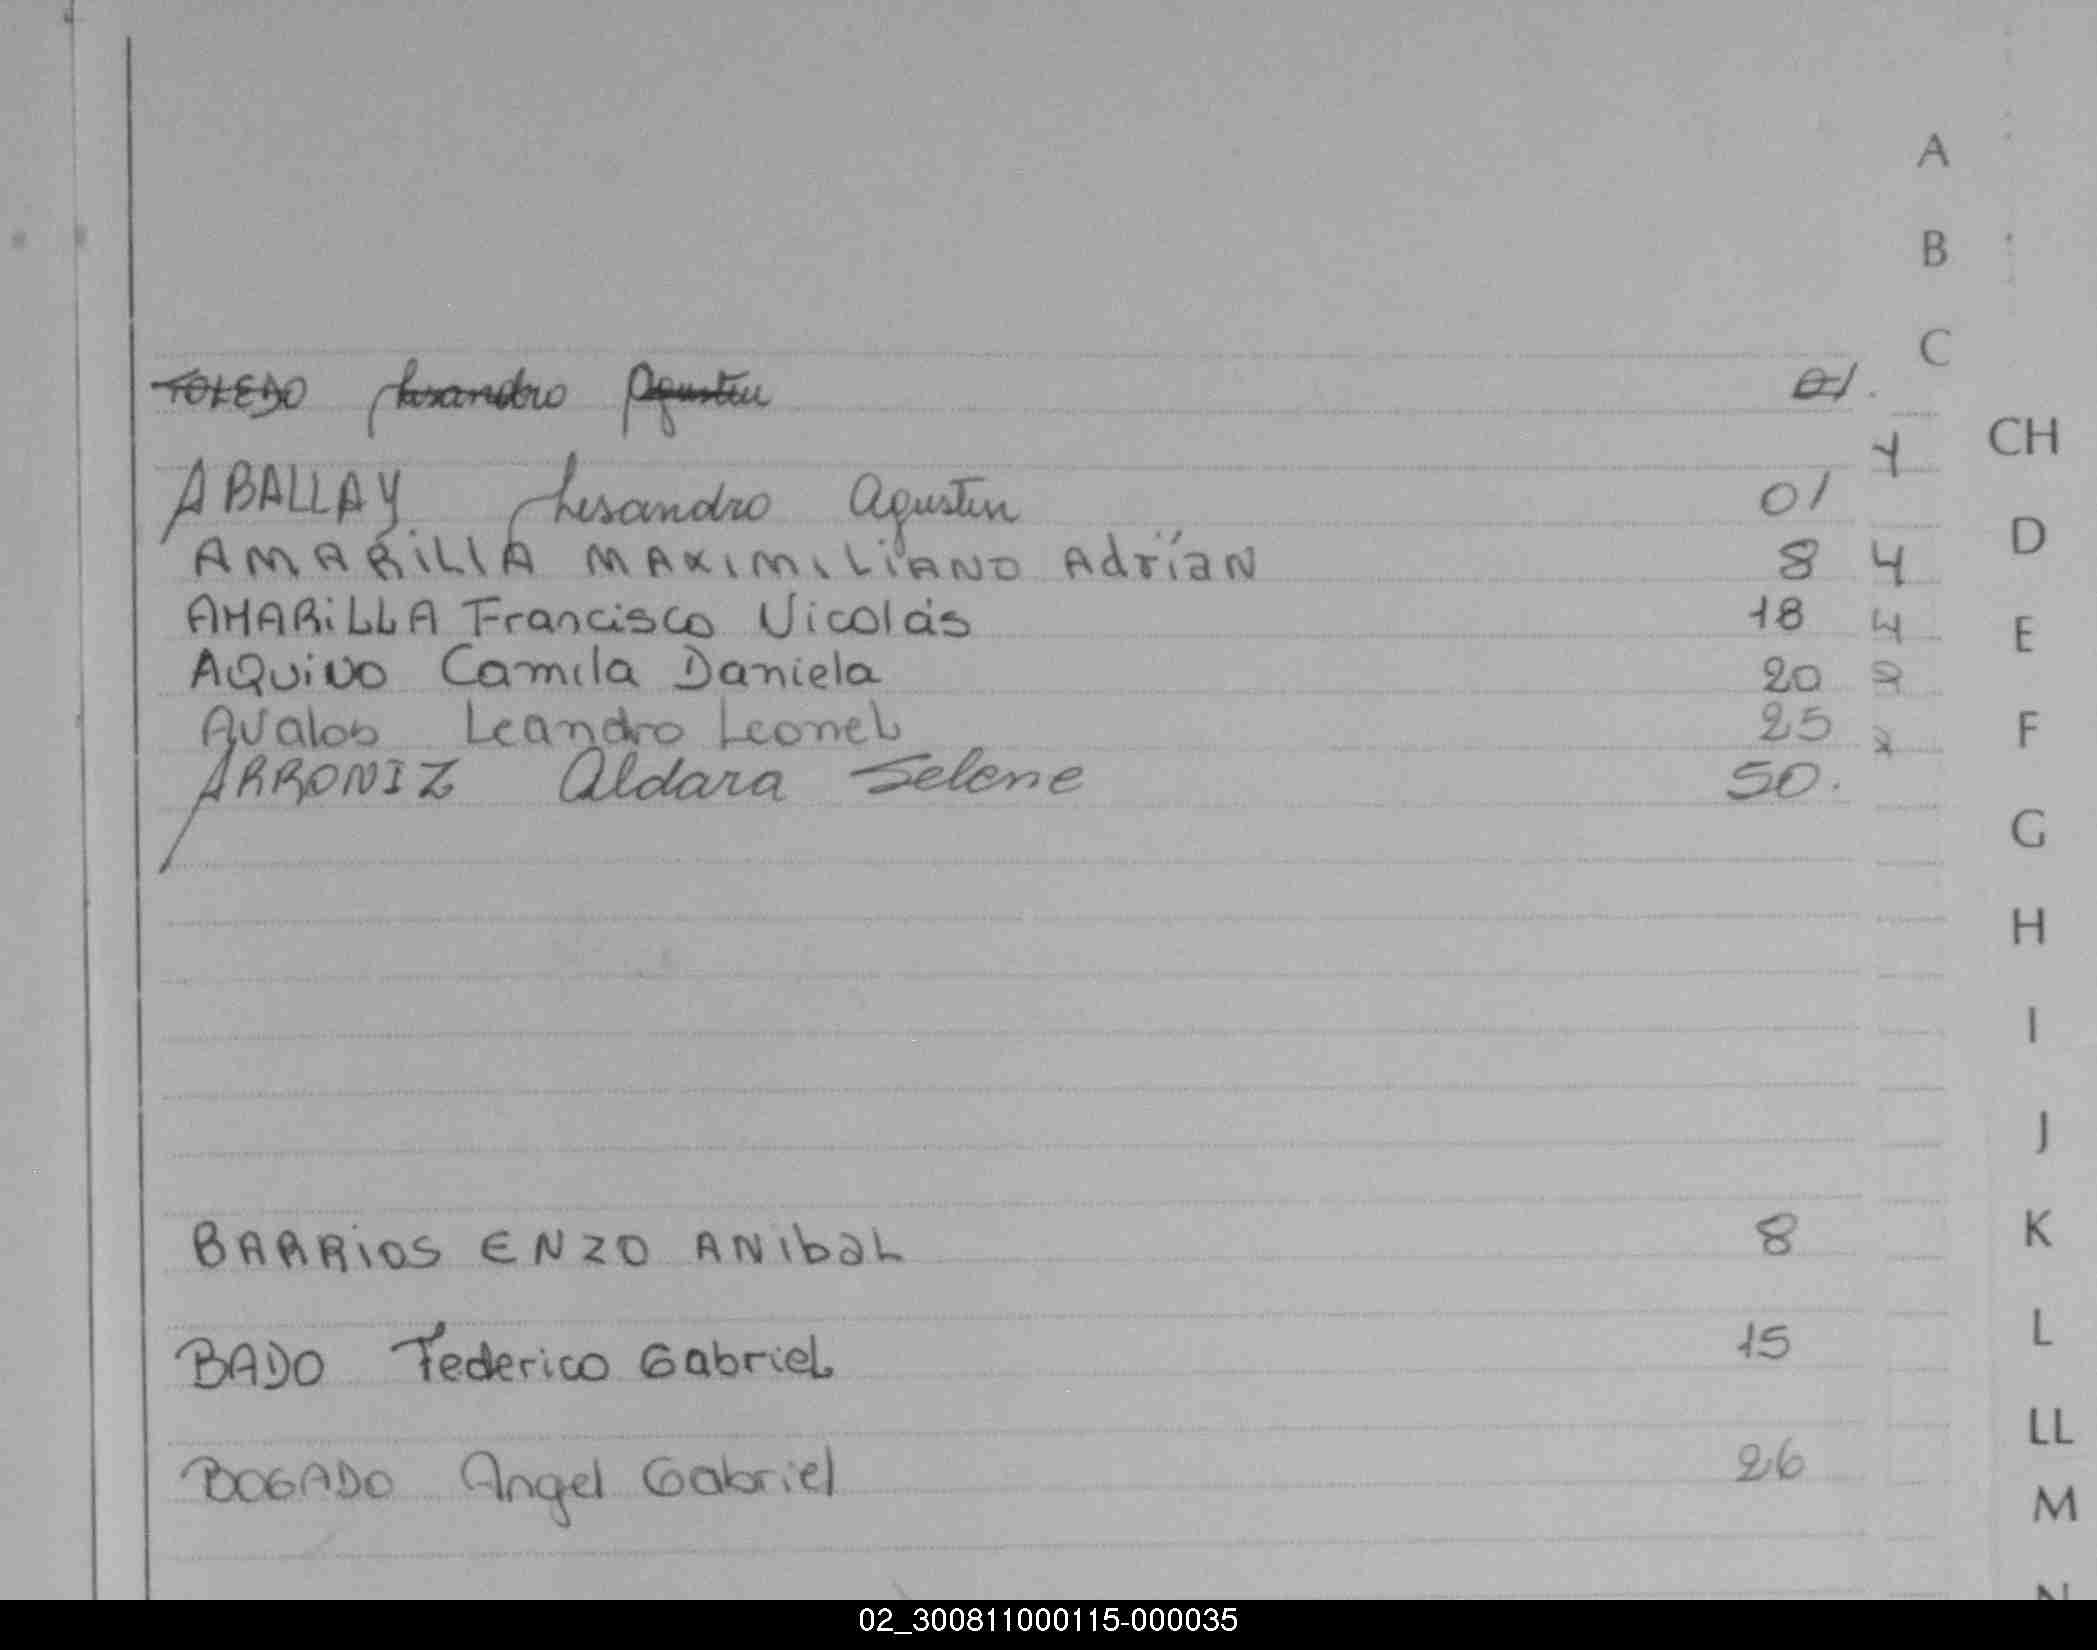 A
B
C
TOLEDO Lisandro Agustin 01.
CH
ABALLAY Lisandro Agustin 01
D
AMARILLA MAXIMILIANO Adrían 8 4
AMARILLA Francisco Nicolás 18 4
E
AQUINO Camila Daniela 20
Avalos Leandro Leonel 25
F
ARRONIZ Aldara Selene 50.
G
H
I
J
BARRIOS ENZO ANIbaL 8
K
BADO Federico Gabriel 15
L
LL
BOGADO Angel Gabriel 26
M
N
02_300811000115-000035